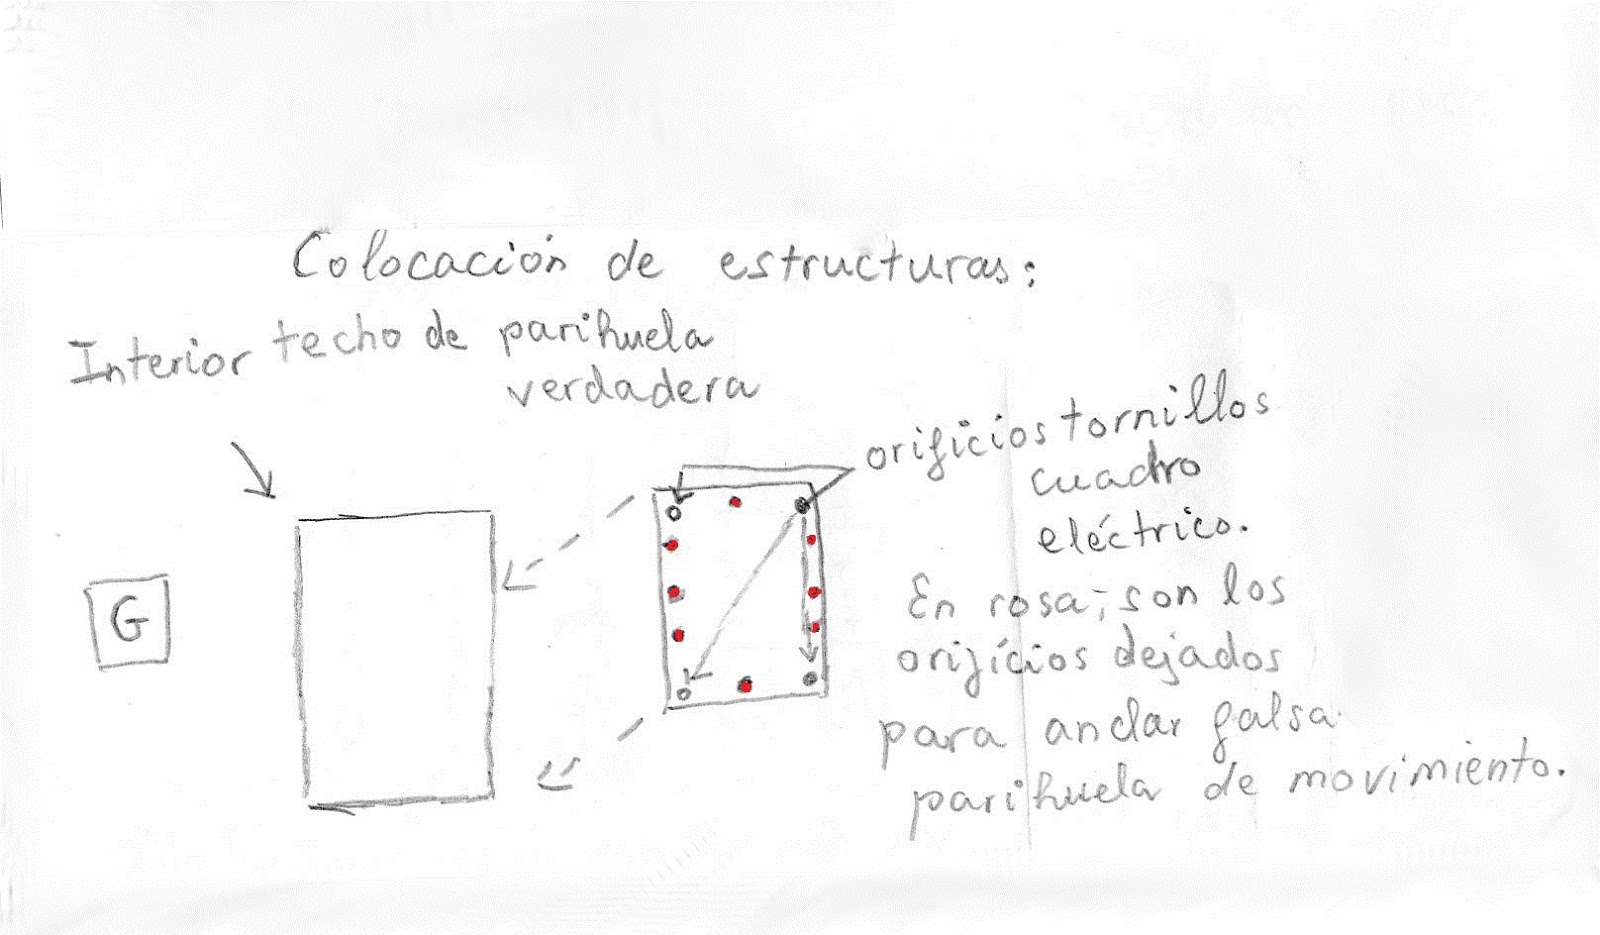 Colocación de estructuras:
Interior techo de parihuela
verdadera
orificios tornillos
cuadro
eléctrico.
En rosa; son los
orificios dejados
para andar falsa
parihuela de movimiento.
G